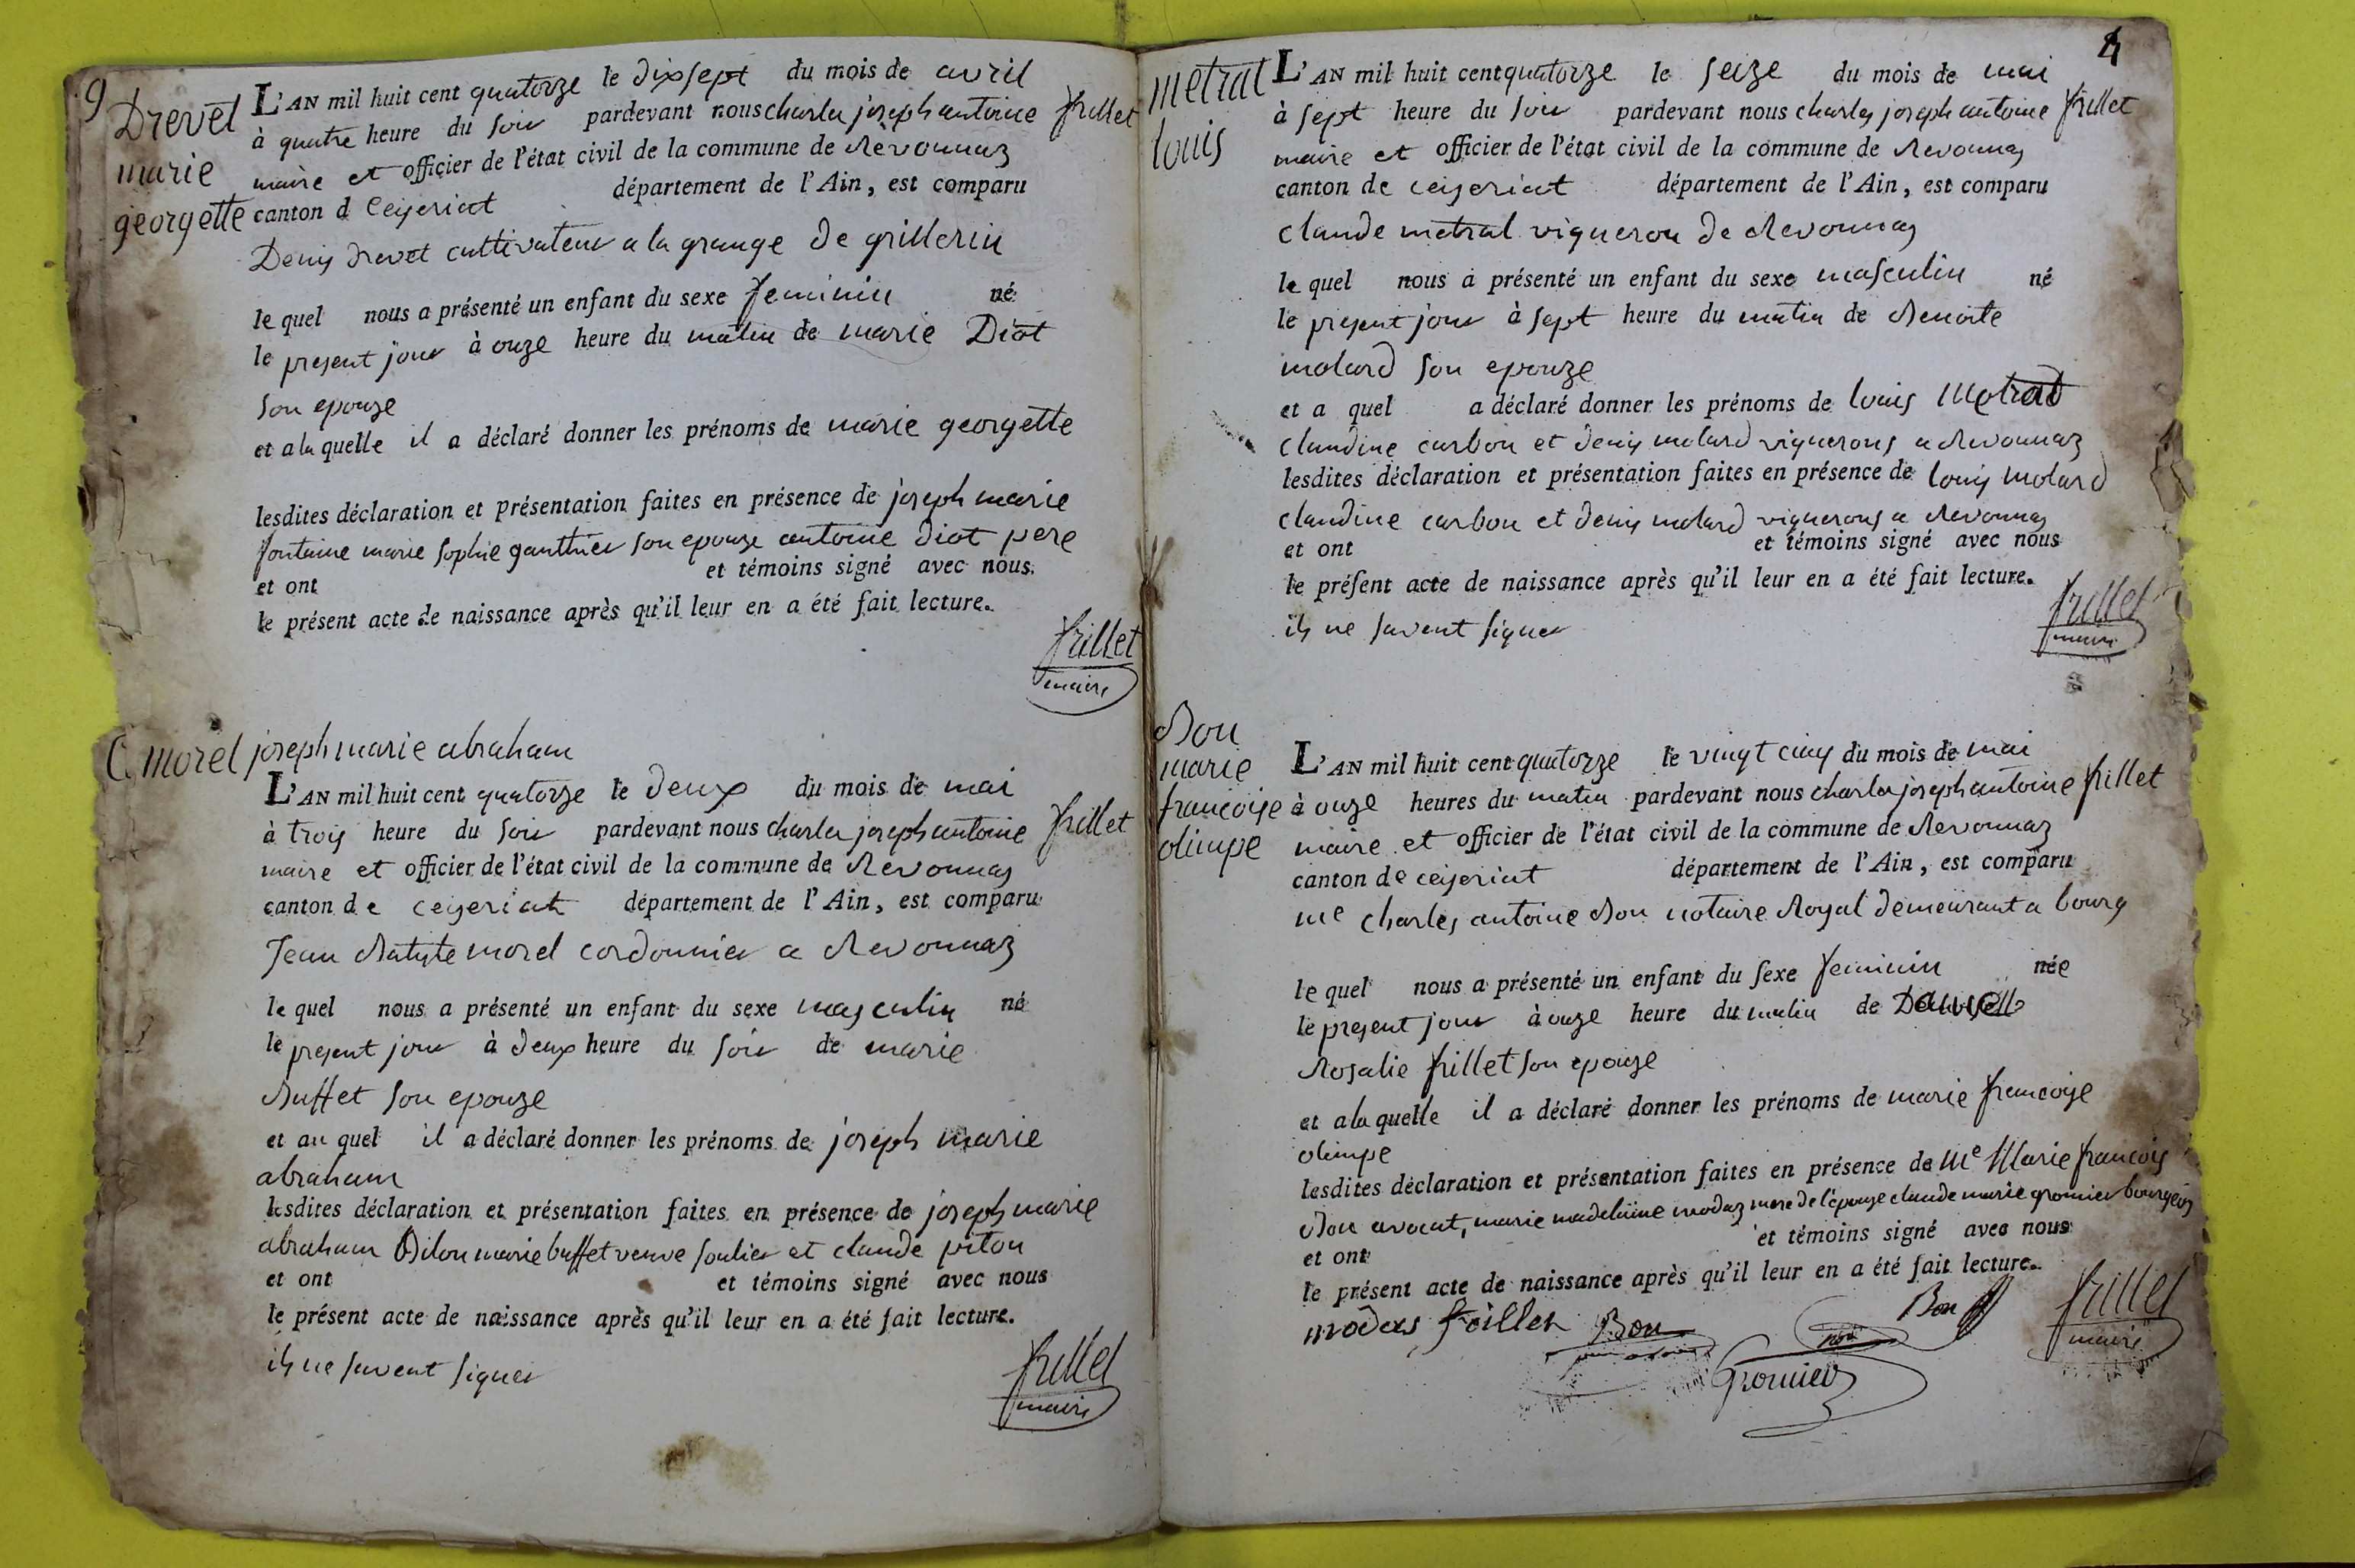 9
Drevet
marie
georgette
L'AN mil huit cent quatorze le dixsept du mois de avril
à quatre heure du soir pardevant nous charles joseph antoine frillet
maire et officier de l'état civil de la commune de Revonnaz
canton d Ceyzeriat département de l'Ain, est comparu
Denis drevet cultivateur a la grange de grillerin
le quel nous a présenté un enfant du sexe feminin né
le present jour à onze heure du matin de marie Diot
son epouze
et a la quelle il a déclaré donner les prénoms de marie georgette
lesdites déclaration et présentation faites en présence de joseph marie
fontaine marie sophie gauthier son epouze antoine diot pere
et ont et témoins signé avec nous
le présent acte de naissance après qu'il leur en a été fait lecture.
frillet
maire
morel joseph marie abraham
L'AN mil huit cent quatorze le deux du mois de mai
à trois heure du soir pardevant nous charles joseph antoine frillet
maire et officier de l'état civil de la commune de Revonnas
canton de ceyzeriat département de l'Ain, est comparu
Jean Batiste morel cordonnier a Revonnaz
le quel nous a présenté un enfant du sexe masculin né
le present jour à deux heure du soir de marie
Buffet son epouze
et au quel il a déclaré donner les prénoms de joseph marie
abraham
lesdites déclaration et présentation faites en présence de joseph marie
abraham marie buffet veuve soulier et claude piton
et ont et témoins signé avec nous
le présent acte de naissance après qu'il leur en a été fait lecture.
ils ne savent signer
frillet
maire
4
metral
louis
L'AN mil huit cent quatorze le seize du mois de mai
à sept heure du soir pardevant nous charles joseph antoine frillet
maire et officier de l'état civil de la commune de Revonnas
canton de ceyzeriat département de l'Ain, est comparu
claude metral vigneron de Revonnas
le quel nous a présenté un enfant du sexe masculin né
le present jour à sept heure du matin de Benoite
molard son epouze
et a quel a déclaré donner les prénoms de louis Metral
claudine carbon et denis molard vignerons a Revonnaz
lesdites déclaration et présentation faites en présence de louis molard
claudine carbon et denis molard vignerons a Revonnas
et ont et témoins signé avec nous
le présent acte de naissance après qu'il leur en a été fait lecture.
ils ne savent signer
frillet
maire
Bon
marie
francoise
olimpe
L'AN mil huit cent quatorze le vingt cinq du mois de mai
à onze heures du matin pardevant nous charles joseph antoine frillet
maire et officier de l'état civil de la commune de Revonnaz
canton de ceyzeriat département de l'Ain, est comparu
me charles antoine Bon notaire Royal demeurant a bourg
le quel nous a présenté un enfant du sexe feminin née
le present jour à onze heure du matin de
Rosalie frillet son epouze
et a la quelle il a déclaré donner les prénoms de marie francoise
olimpe
lesdites déclaration et présentation faites en présence de Me Marie francois
Bon avocat, marie madelaine modas mere de l'épouze claude marie gromier bourgeois
et ont et témoins signé avec nous
le présent acte de naissance après qu'il leur en a été fait lecture.
modas frillet Bon Bon frillet
maire
Gromier